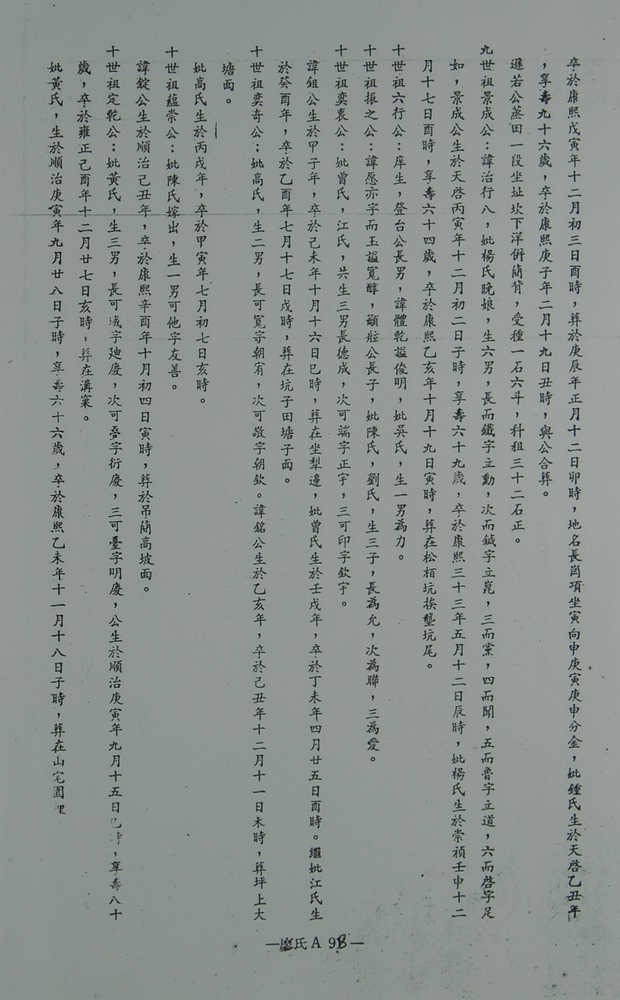 卒於康熙戊寅年十二月初三日酉時，葬於庚辰年正月十二日卯時，地名長崗項坐寅向申庚寅庚申分金，妣鍾氏生於天啓乙丑年
，享壽九十六歲，卒於康熙庚子年二月十九日丑時，與公合葬。
遜若公蒸田一段坐址坎下洋併蕳背，受種一石六斗，科租三十二石正。
九世祖景成公：諱治行八，妣楊氏晚娘，生六男，長而鐵字立動，次而鍼字立崑，三而黨，四而聞，五而魯字立道，六而啓字足
如，景成公生於天啓丙寅年十二月初二日子時，享壽六十九歲，卒於康熙三十三年五月十二日辰時，妣楊氏生於崇禎壬申十二
月十七日酉時，享壽六十四歲，卒於康熙乙亥年十月十九日寅時，葬在松栢坑挨壟坑尾。
十世祖六行公：庠生，登台公長男，諱體乾諡俊明，妣吳氏，生一男為力。
十世祖振之公：諱愿亦字而玉諡寬醇，顯粧公長子，妣陳氏，劉氏，生三子，長為允，次為聯，三為愛。
十世祖奕袞公：妣曾氏，江氏，共生三男長德成，次可端字正宇，三可印字欽宇。
諱鉏公生於甲子年，卒於己未年十月十六日巳時，葬在坐犁邊，妣曾氏生於壬戌年，卒於丁未年四月廿五日酉時。繼妣江氏生
於癸酉年，卒於乙酉年七月十七日戌時，葬在坑子田塘子面。
十世祖奕奇公：妣高氏，生二男，長可寬字朝宥，次可敬字朝欽。諱銘公生於乙亥年，卒於己丑年十二月十一日未時，葬坪上大
塘面。
妣高氏生於丙戌年，卒於甲寅年七月初七日亥時。
十世祖蘊崇公：妣陳氏嫁出，生一男可他字友善。
諱錠公生於順治己丑年，卒於康熙辛酉年十月初四日寅時，葬於吊蕳高坡面。
十世祖定乾公：妣黃氏，生三男，長可域字廸慶，次可叠字衍慶，三可臺字明慶，公生於順治庚寅年九月十五日巳時，享壽八十
歲，卒於雍正己酉年十二月廿七日亥時，葬在溝窠。
妣黃氏，生於順治庚寅年九月廿八日子時，享壽六十六歲，卒於康熙乙未年十一月十八日子時，葬在山宅園
—廖氏A 93—